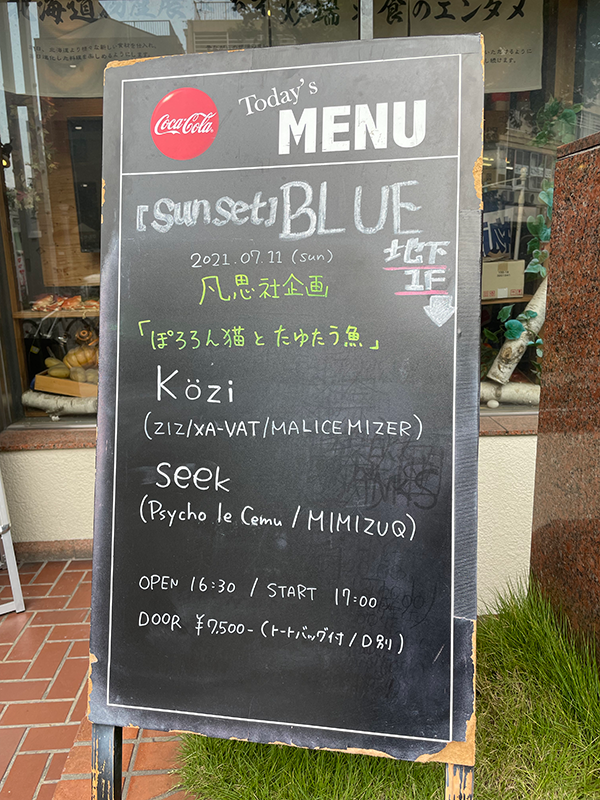 × 食のエンタメ
Coca-Cola
Today's
MENU
[sunset]BLUE
2021.07.11 (sun)
地下
1F
凡思社企画
「ぽろろん猫とたゆたう魚」
Közi
(ZIZ/XA-VAT/MALICE MIZER)
seek
(Psycho le Cemu / MIMIZUQ)
OPEN 16:30 / START 17:00
DOOR ¥7,500-(トートバッグ付/D別)